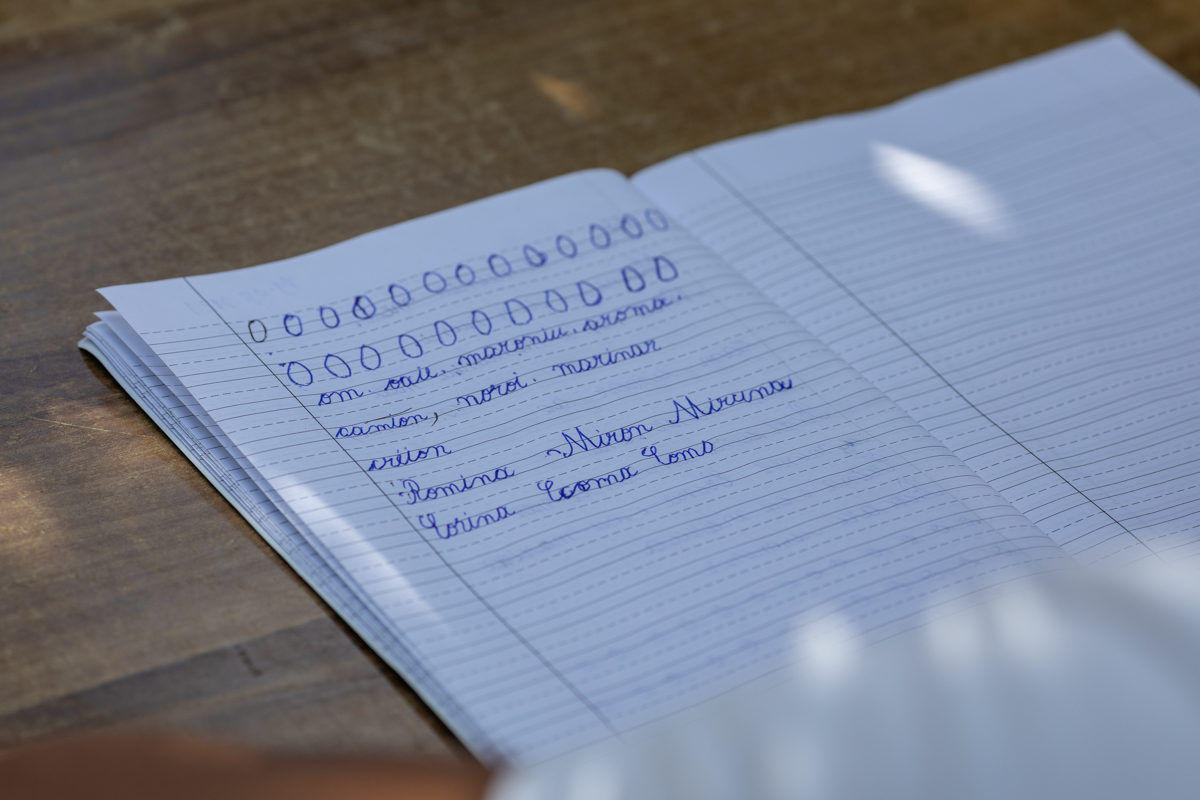 O O O O O O O O O O O O
O O O O O O O O O O O
om. oale. maroniu. aroma.
camion, noroi. marinar
avion
Romina Miron Miruna
Corina Coroma Toma